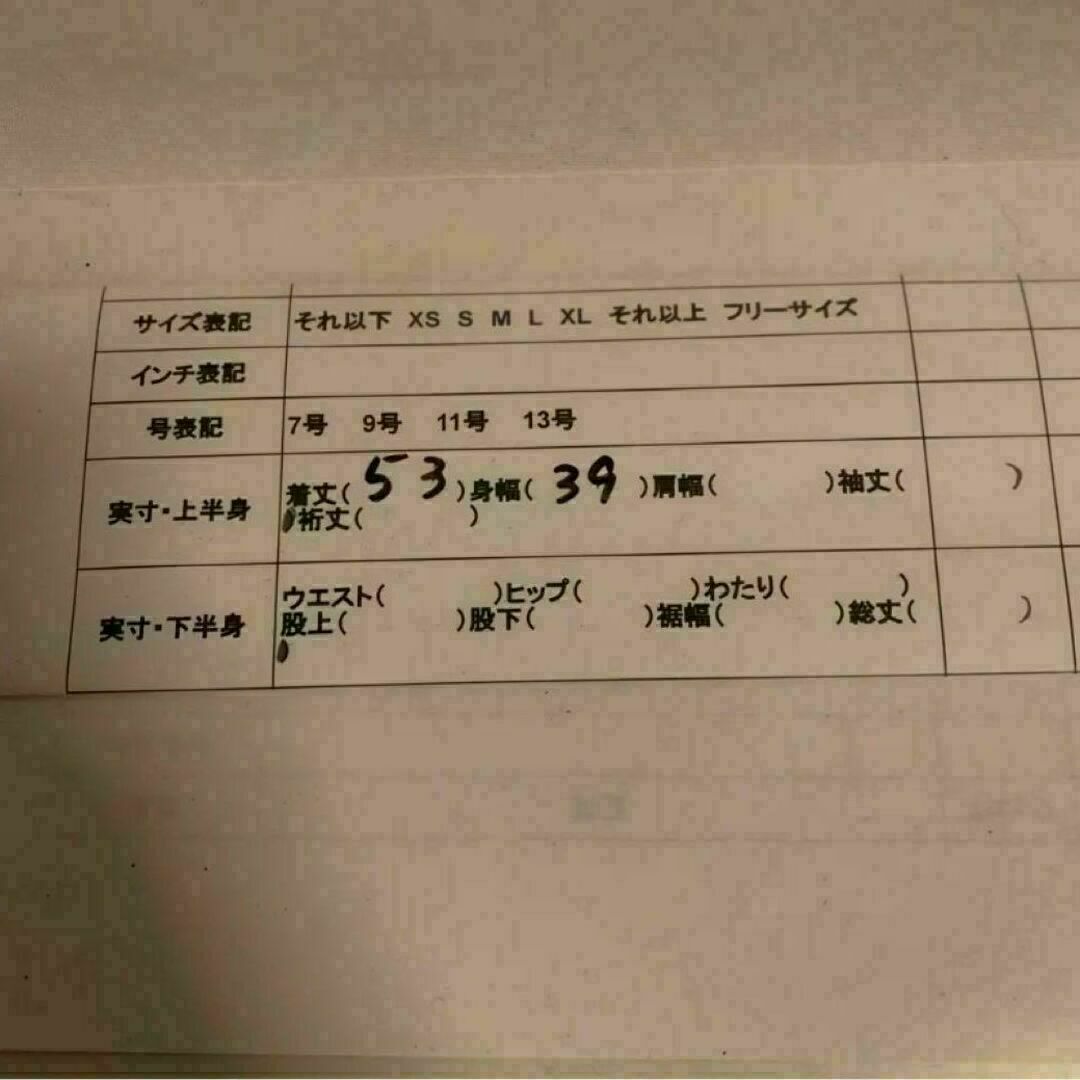 サイズ表記 それ以下 XS S M L XL それ以上 フリーサイズ
インチ表記
号表記 7号 9号 11号 13号
実寸・上半身 着丈( 53 )身幅( 39 )肩幅( )袖丈( )
裄丈( )
実寸・下半身 ウエスト( )ヒップ( )わたり( )
股上( )股下( )裾幅( )総丈( )